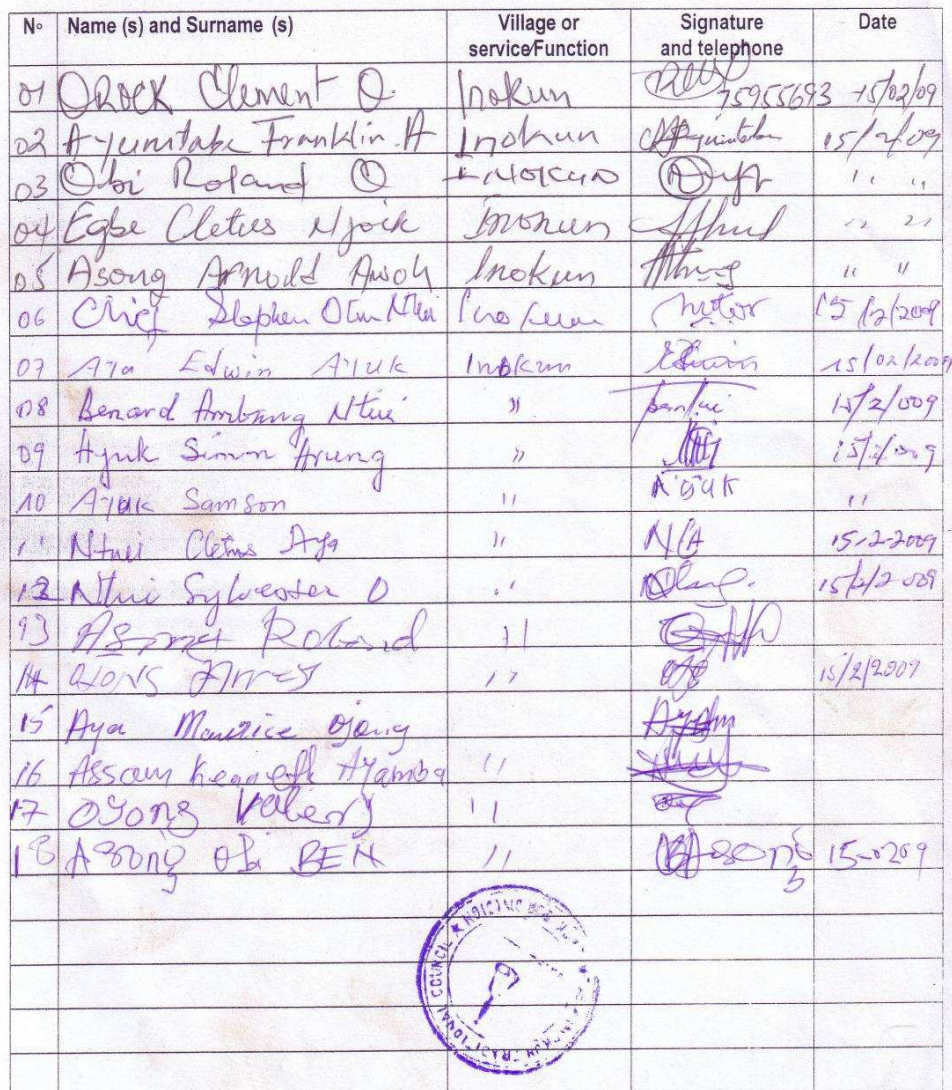 N° Name (s) and Surname (s) Village or service/Function Signature and telephone Date
01 OROCK Clement O. Inokun 75955693 15/02/09
02 Ayumtabe Franklin A Inokun 15/2/09
03 Obi Roland O INOKUN " "
04 Egbe Cletus Njock Inokun " "
05 Asong Arnold Awoh Inokun " "
06 Chief Stephen Otu Ntui Inokun 15/2/2009
07 Aya Edwin AYUK Inokun Edwin 15/02/2009
08 Benard Ambang Ntui " 15/2/009
09 Ayuk Simon Arung "
10 AYUK Samson " AYUK "
11 Ntui Cletus Aya " N/A 15-2-2009
12 Ntui Sylvester O " 15/2/2009
13 Roland "
14 " 15/2/2009
15 Aya Maurice Ojong
16 Assam Kenneth Ayamba "
17 OJONG Valery "
18 Asong Obi BEN " Asong 15-0209
TRADITIONAL COUNCIL